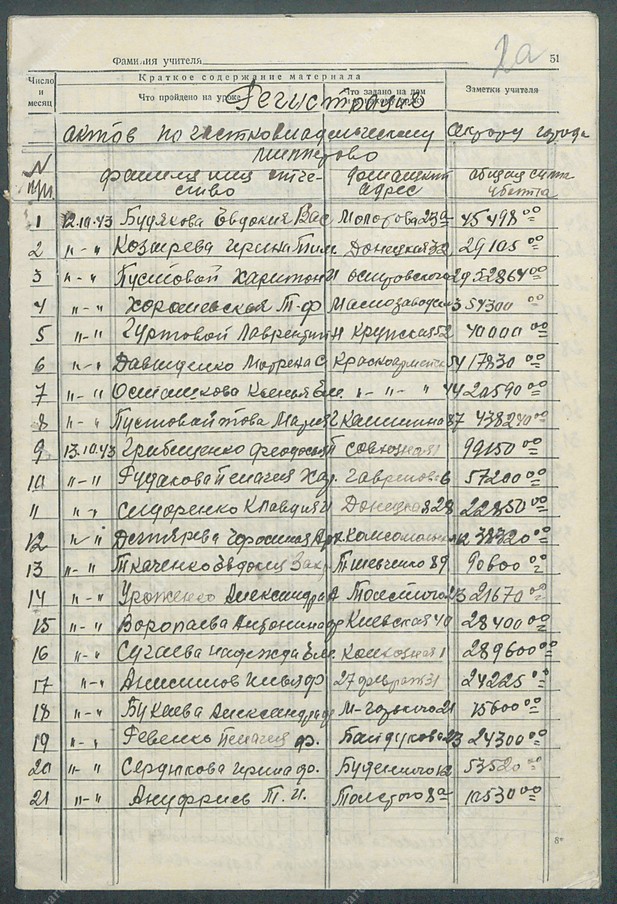 2а
Фамилия учителя 51
Краткое содержание материала
Число и месяц
Что пройдено на уроке
Что задано на дом
Заметки учителя
Регистрация
актов по частновладельческому сектору города
N п/п. фамилия имя отчество домашний адрес общая сумма убытка
1 12.10.43 Будякова Евдокия Вас Молотова 23а 45498 00
2 "-" Козырева Ирина Тим Донецкая 32 29105 00
3 "-" Пустовой Харитон И Островского 29 52864 00
4 "-" Хорошевская Т-Ф Маслозаводск 3 54300 00
5 "-" Гуртовой Лаврентий Н Крупская 52 40000 00
6 "-" Давиденко Матрена С Красноармейск 54 17830 00
7 "-" "-"-" 44 20590 00
8 "-" Пустовойтова Мария Калинина 87 438240 00
9 13.10.43 Грибиненко Феодосия 99150 00
10 "-" Рудакова Пелагея 57200 00
11 "-" Сидоренко Клавдия И Донецкая 828 22850 00
12 "-" Комсомольск
13 "-" Ткаченко Евдокия Зах. Т-Шевченко 89 90600 00
14 "-" Уроженко Александра Толстого 23 21670 00
15 "-" Воропаева Антонина Киевская 40 28400 00
16 "-" Сугаева Надежда Ем. Колхозная 1 289600 00
17 "-" Анисимов 27 февраля 31 24225 00
18 "-" Букаева Александра М-Горького 21 15600 00
19 "-" Ревенко Пелагея Ф. Байдукова 23 24300 00
20 "-" Сердюкова Ирина Буденного 12 53520 00
21 "-" Ануфриев Т. И. Толстого 8а 10530 00
8*